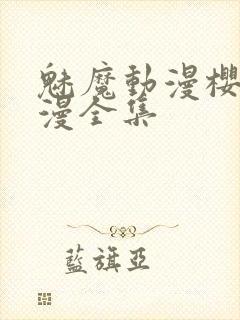 魅魔動漫櫻
漫全集
藍旗亞